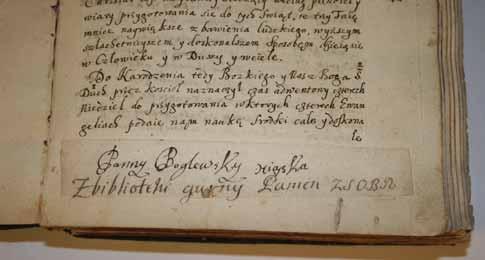 wiary przygotowania się do tych Swiąt, te try Taię
mnice naywiększe z bawienia ludzkiego, wyższym
szlachetnieyszem, y doskonalszem sposobem, dzieią się
w Człowieku, y w Duszy, y w ciele.
Do Narodzenia tedy Bozkiego y Nasz Boga S
Duch przez Kościoł naznaczył czas adwentowy czterech
Niedziel do przygotowania w ktorych czterech Ewan
geliach podaie nam naukę srodki całey y doskona
łe
Panny Boglewsky
Zbiblioteki gurny Panien ZSOBN